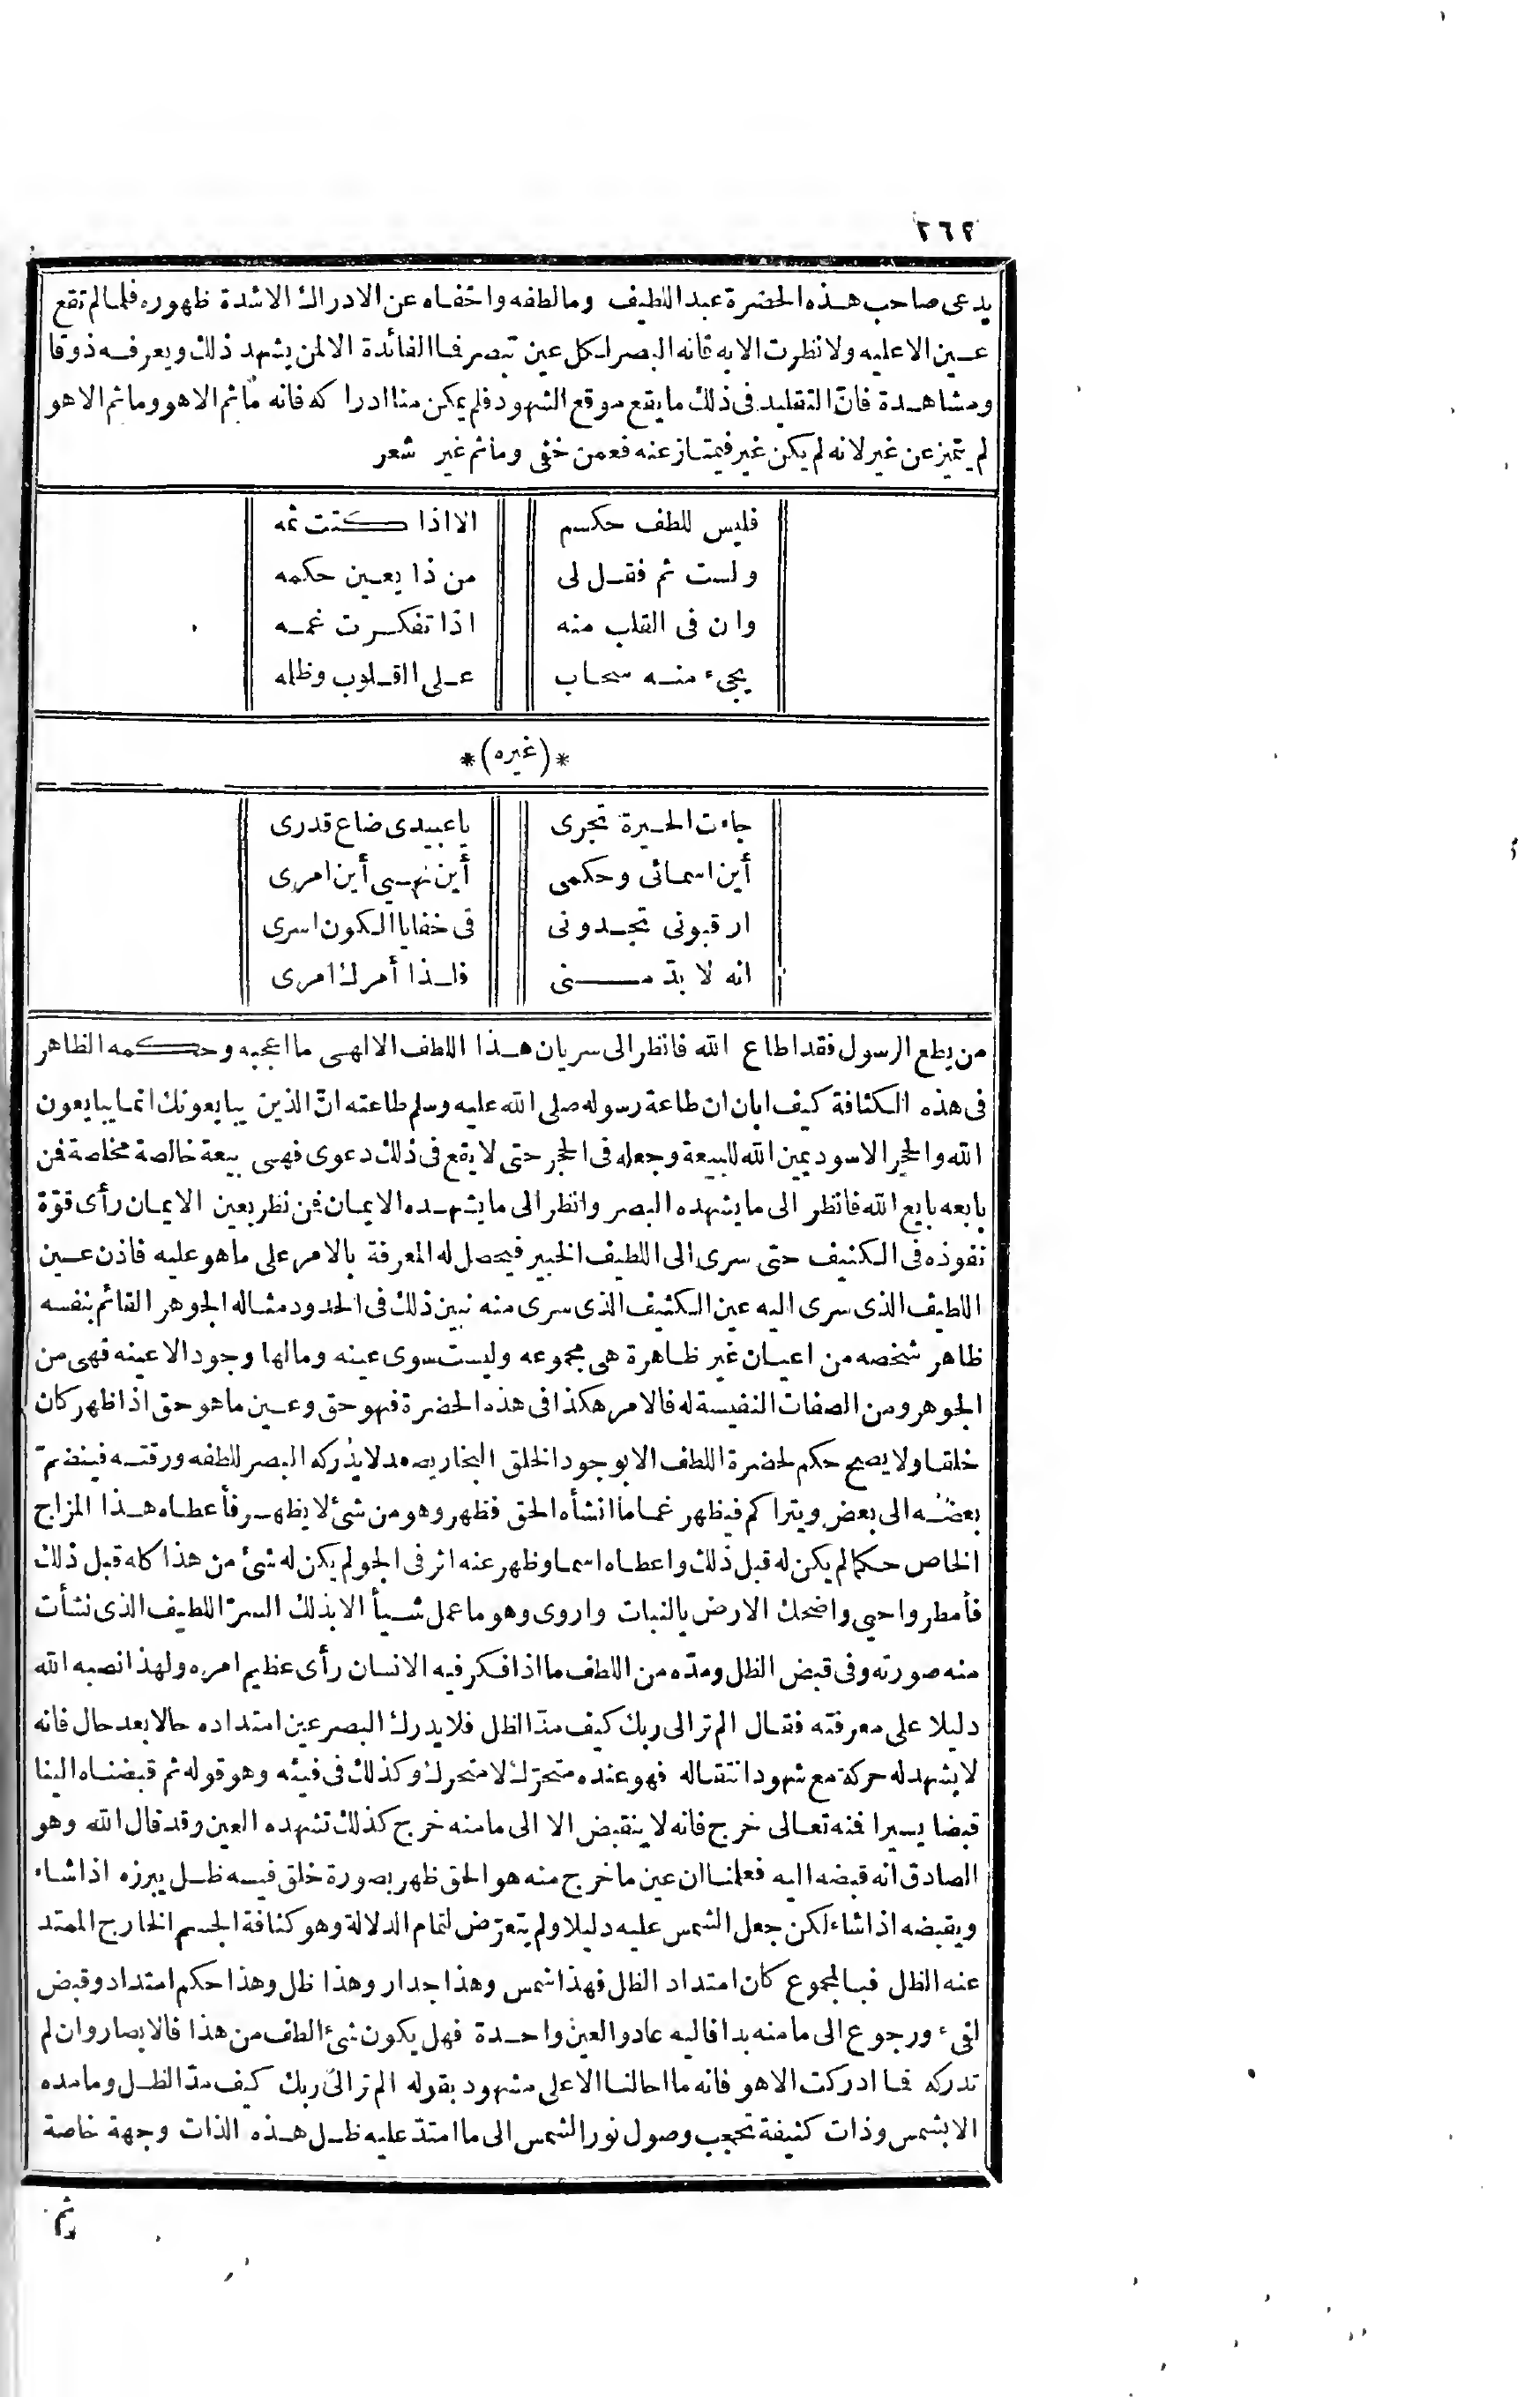 ٢٦٢
يدعى صاحب هذه الحضرة عبد اللطيف وما لطفه واخفاه عن الادراك الاشدة ظهوره فلما لم تقع
عين الاعليه ولا نظرت الابه فانه البصر لكل عين تبصر فما الفائدة الالمن يشهد ذلك ويعرفه ذوقا
ومشاهدة فانّ التقليد فى ذلك ما يقع موقع الشهود فلم يمكن منا ادراكه فانه ماثم الاهو وماثم الاهو
لم يتميز عن غير لانه لم يكن غير فيمتاز عنه فعمن خفى وماثم غير شعر
فليس للطف حكم الا اذا كنت ثمه
ولست ثم فقل لى من ذا يعين حكمه
وان فى القلب منه اذا تفكرت غمه
يجىء منه سحاب على القلوب وظله
*(غيره)*
جاءت الحيرة تجرى يا عبيدى ضاع قدرى
أين اسمائى وحكمى أين نهيى أين امرى
ارقبونى تجدونى فى خفايا الكون اسرى
انه لا بدّ منى فلذا أمرك امرى
من يطع الرسول فقد اطاع الله فانظر الى سريان هذا اللطف الالهى ما اعجبه وحكمه الظاهر
فى هذه الكثافة كيف ابان ان طاعة رسوله صلى الله عليه وسلم طاعته انّ الذين يبايعونك انما يبايعون
الله والحجر الاسود يمين الله للبيعة وجعله فى الحجر حتى لا يقع فى ذلك دعوى فهى بيعة خالصة مخلصة فمن
بايعه بايع الله فانظر الى ما يشهده البصر وانظر الى ما يشهده الايمان فمن نظر بعين الايمان رأى قوّة
نفوذه فى الكثيف حتى سرى الى اللطيف الخبير فيحصل له المعرفة بالامر على ما هو عليه فاذن عين
اللطيف الذى سرى اليه عين الكثيف الذى سرى منه نبين ذلك فى الحدود مثاله الجوهر القائم بنفسه
ظاهر شخصه من اعيان غير ظاهرة هى مجموعه وليست سوى عينه ومالها وجود الاعينه فهى من
الجوهر ومن الصفات النفيسة له فالامر هكذا فى هذه الحضرة فهو حق وعين ما هو حق اذا ظهر كان
خلقا ولا يصح حكم لحضرة اللطف الابوجود الخلق البخار يصعد لا يدركه البصر للطفه ورقته فينضمّ
بعضه الى بعض ويتراكم فيظهر غماما انشأه الحق فظهر وهو من شئ لا يظهر فأعطاه هذا المزاج
الخاص حكما لم يكن له قبل ذلك واعطاه اسما وظهر عنه اثر فى الجو لم يكن له شئ من هذا كله قبل ذلك
فأمطر واحيى واضحك الارض بالنبات واروى وهو ما عمل شيأ الابذلك السرّ اللطيف الذى نشأت
منه صورته وفى قبض الظل ومدّه من اللطف ما اذا فكر فيه الانسان رأى عظيم امره ولهذا نصبه الله
دليلا على معرفته فقال الم تر الى ربك كيف مدّ الظل فلا يدرك البصر عين امتداده حالا بعد حال فانه
لا يشهد له حركة مع شهود انتقاله فهو عنده متحرّك لا متحرك وكذلك فى فيئه وهو قوله ثم قبضناه الينا
قبضا يسيرا فمنه تعالى خرج فانه لا ينقبض الا الى مامنه خرج كذلك تشهده العين وقد قال الله وهو
الصادق انه قبضه اليه فعلمنا ان عين ما خرج منه هو الحق ظهر بصورة خلق فيه ظل يبرزه اذا شاء
ويقبضه اذا شاء لكن جعل الشمس عليه دليلا ولم يتعرّض لتمام الدلالة وهو كثافة الجسم الخارج الممتد
عنه الظل فبالمجموع كان امتداد الظل فهذا شمس وهذا جدار وهذا ظل وهذا حكم امتداد وقبض
لفىء ورجوع الى مامنه بدا فاليه عاد والعين واحدة فهل يكون شئ الطف من هذا فالابصار وان لم
تدركه فما ادركت الاهو فانه ما احالنا الاعلى مشهود بقوله الم تر الى ربك كيف مدّ الظل ومامده
الابشمس وذات كثيفة تحجب وصول نور الشمس الى ما امتدّ عليه ظل هذه الذات وجهة خاصة
ثم